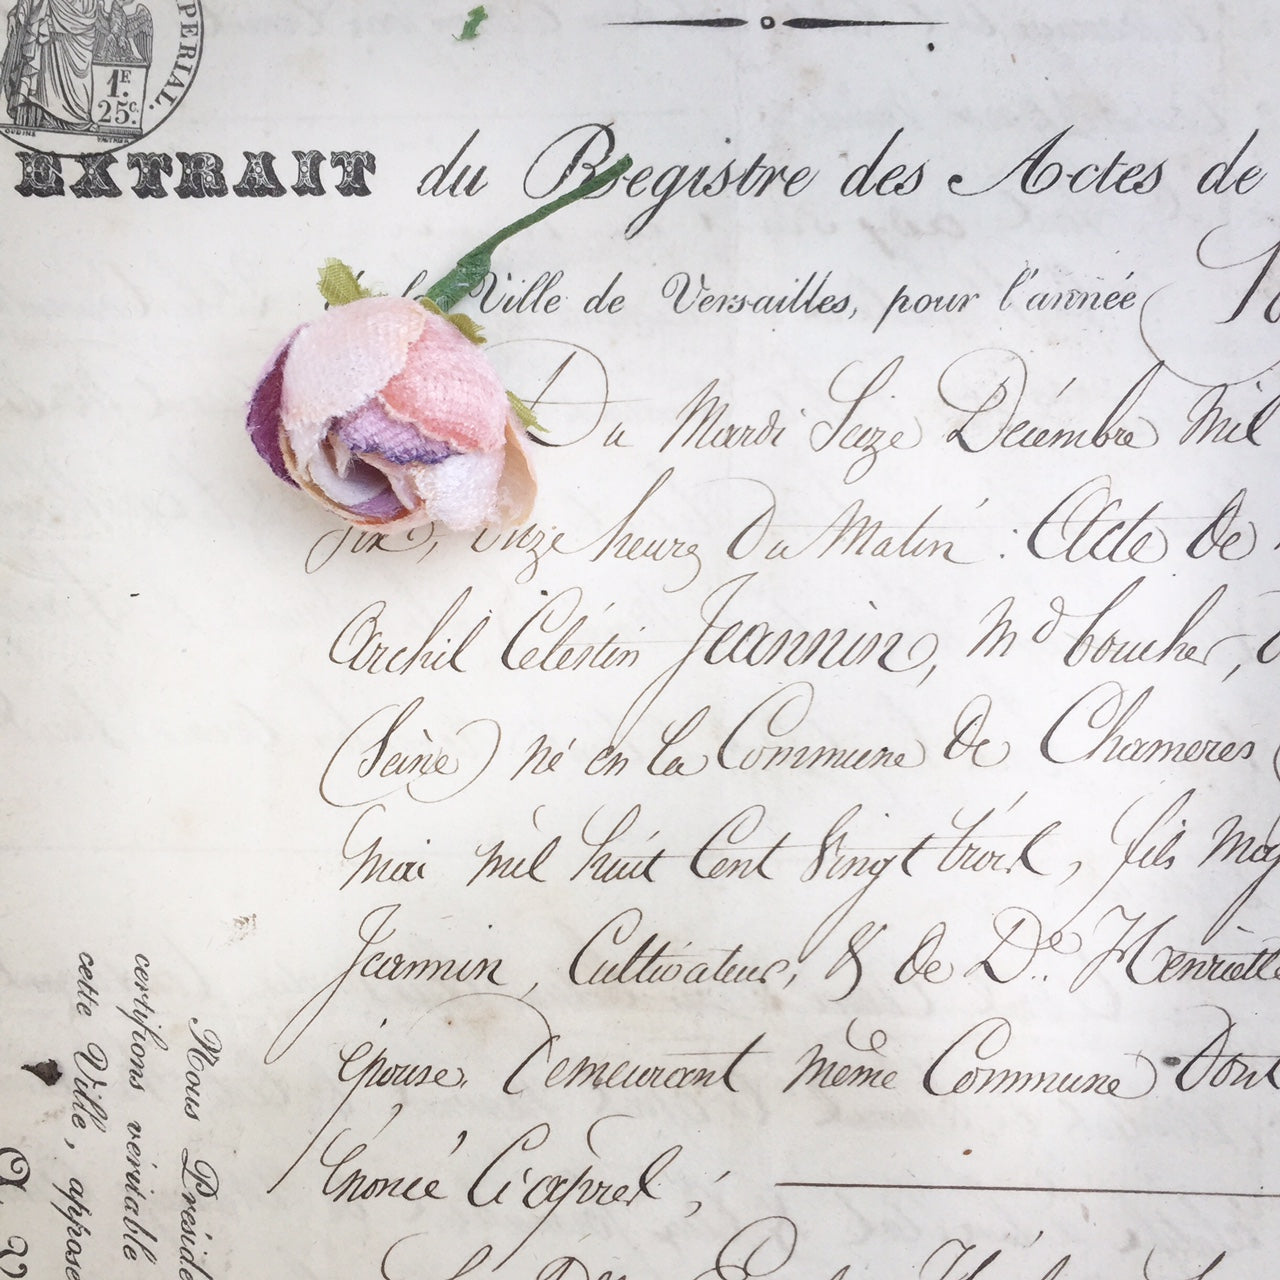 PERIAL.
1F.
25c.
EXTRAIT du Registre des Actes de
Ville de Versailles, pour l'année
Du Mardi Seize Décembre Mil
Six, Onze heures Du Matin : Acte de
Archil Célestin Jeannin, Md boucher,
(Seine) né en la Commune de Chameres
Mai mil huit Cent Vingt trois, fils
Jeannin, Cultivateur, & de De Henriette
épouse, Demeurant même Commune Dont
énoncé Ci après ;
Nous Préside
certifions véritable
cette Ville, appose